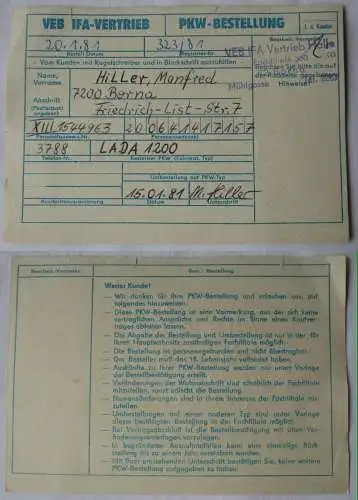 VEB IFA-VERTRIEB PKW-BESTELLUNG
20.1.81 323/81
Bestell-Datum
– Vom Kunden mit Kugelschreiber und in Blockschrift ausfüllen
VEB IFA-Vertrieb Halle
Name, Vorname Hiller, Manfred
Anschrift 7200 Borna
Friedrich-List-Str. 7
XIII 1544963 200641417157
3788 LADA 1200
Telefon-Nr. Bestellter PKW (Fabrikat, Typ)
Umbestellung auf PKW-Typ
15.01.81 M. Hiller
Datum Unterschrift
Werter Kunde!
— Wir danken für Ihre PKW-Bestellung und ersuchen uns, auf folgendes hinzuweisen:
— Diese PKW-Bestellung ist eine Vormerkung, aus der sich keine vertraglichen Ansprüche und Rechte im Sinne eines Kaufvertrages ableiten lassen.
— Die Abgabe der Bestellung und Umbestellung ist nur in der für Ihren Hauptwohnsitz zuständigen Fachfiliale möglich.
— Die Bestellung ist personengebunden und nicht übertragbar.
— Der Besteller muß das 18. Lebensjahr vollendet haben.
— Auskünfte zu Ihrer PKW-Bestellung werden nur unter Vorlage der Bestellbestätigung erteilt.
— Veränderungen der Wohnanschrift sind schriftlich der Fachfiliale mitzuteilen, sonst erlischt die Bestellung.
— Namensänderungen sind in Ihrem Interesse der Fachfiliale mitzuteilen.
— Umbestellungen auf einen anderen Typ sind unter Vorlage dieser bestätigten Bestellung in der Fachfiliale möglich.
— Bei Vertragsabschluß ist die Bestellbestätigung mit allen Veränderungsunterlagen vorzulegen.
— In begründeten Ausnahmefällen kann eine einmalige Rückstellung bis zu einem Jahr vereinbart werden.
— Mit Ihrer umstehenden Unterschrift bestätigen Sie, keine weitere PKW-Bestellung aufgegeben zu haben.